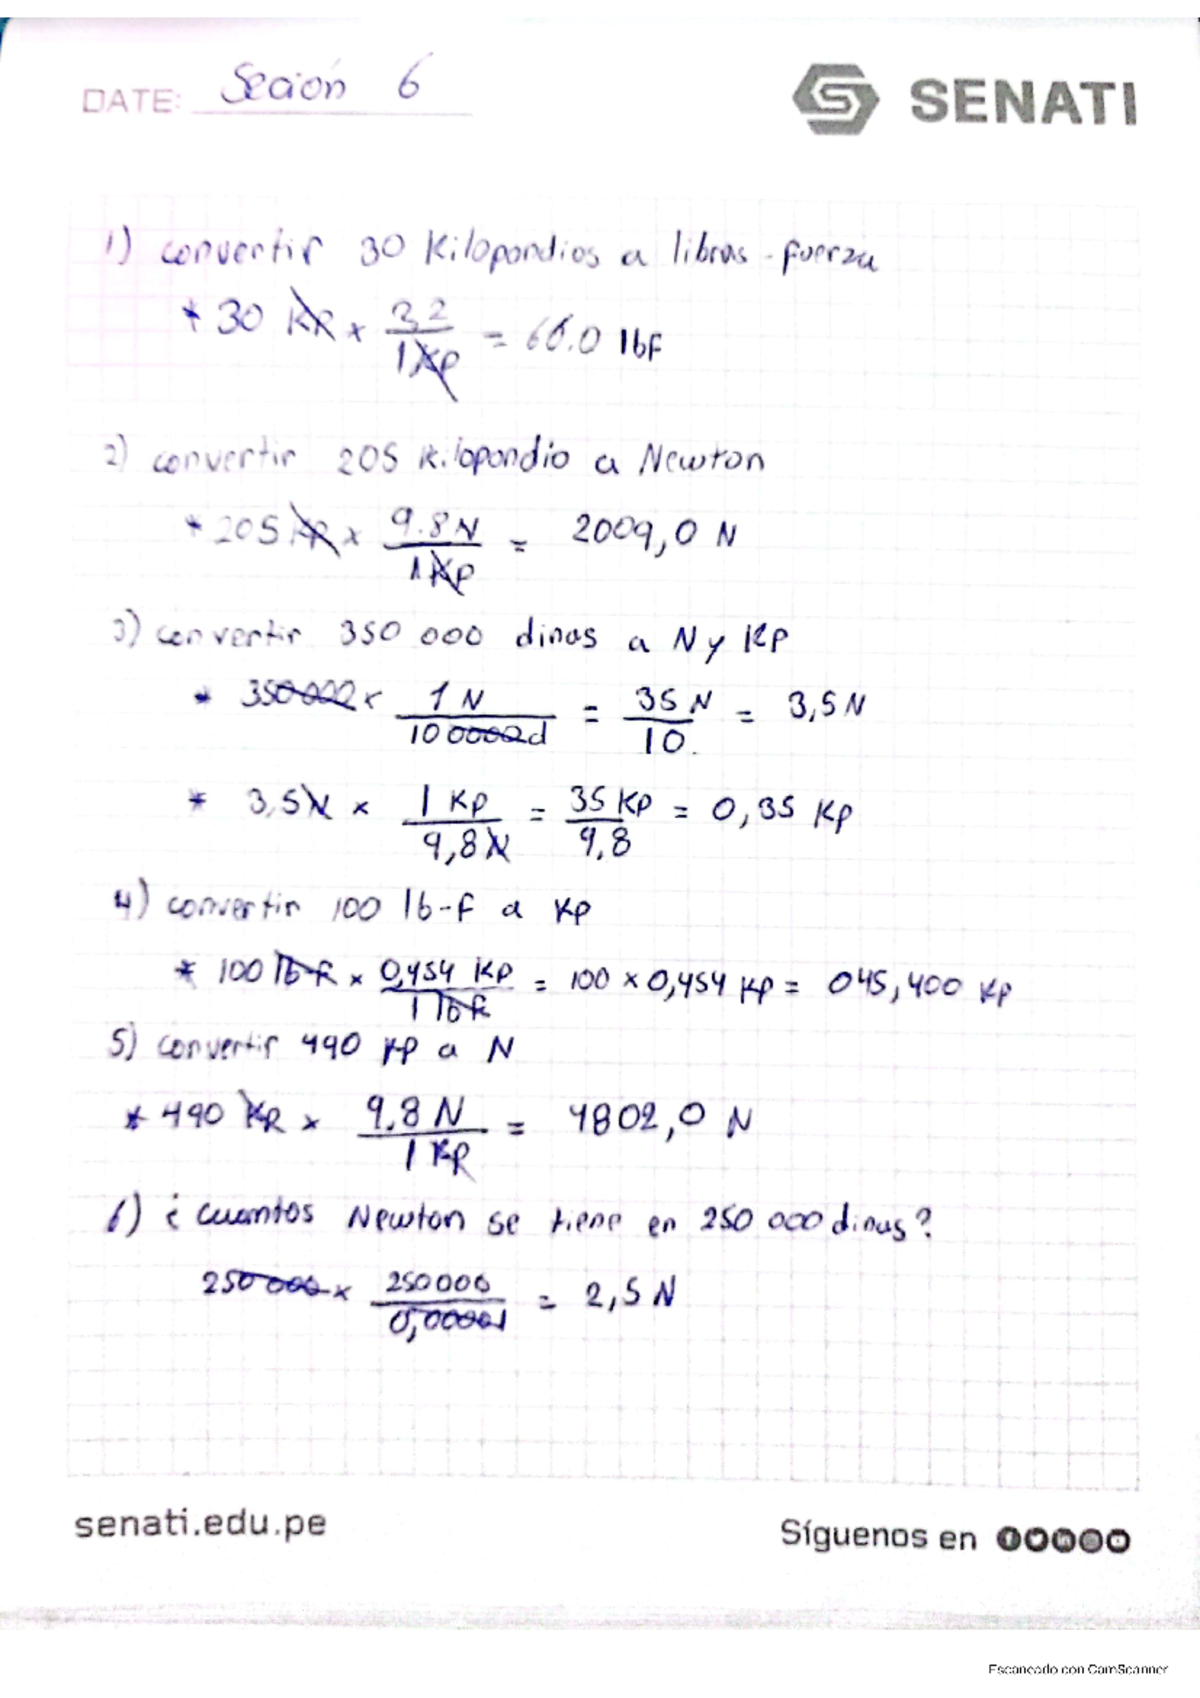 DATE: Seción 6
SENATI
1) convertir 30 Kilopondios a libras-fuerza
* 30 KP x 2,2 / 1 Kp = 66.0 lbf
2) convertir 205 kilopondio a Newton
* 205 KP x 9.8 N / 1 Kp = 2009,0 N
3) convertir 350 000 dinas a N y KP
* 350 000 x 1 N / 10 0000 d = 35 N / 10 = 3,5 N
* 3,5 N x 1 KP / 9,8 N = 35 KP / 9,8 = 0,35 KP
4) convertir 100 lb-F a KP
* 100 lb-f x 0,454 KP / 1 lb f = 100 x 0,454 KP = 045,400 KP
5) convertir 490 KP a N
* 490 KP x 9,8 N / 1 KP = 4802,0 N
6) ¿cuantos Newton se tiene en 250 000 dinas?
250 000 x 250000 / 0,0000d = 2,5 N
senati.edu.pe
Síguenos en
Escaneado con CamScanner